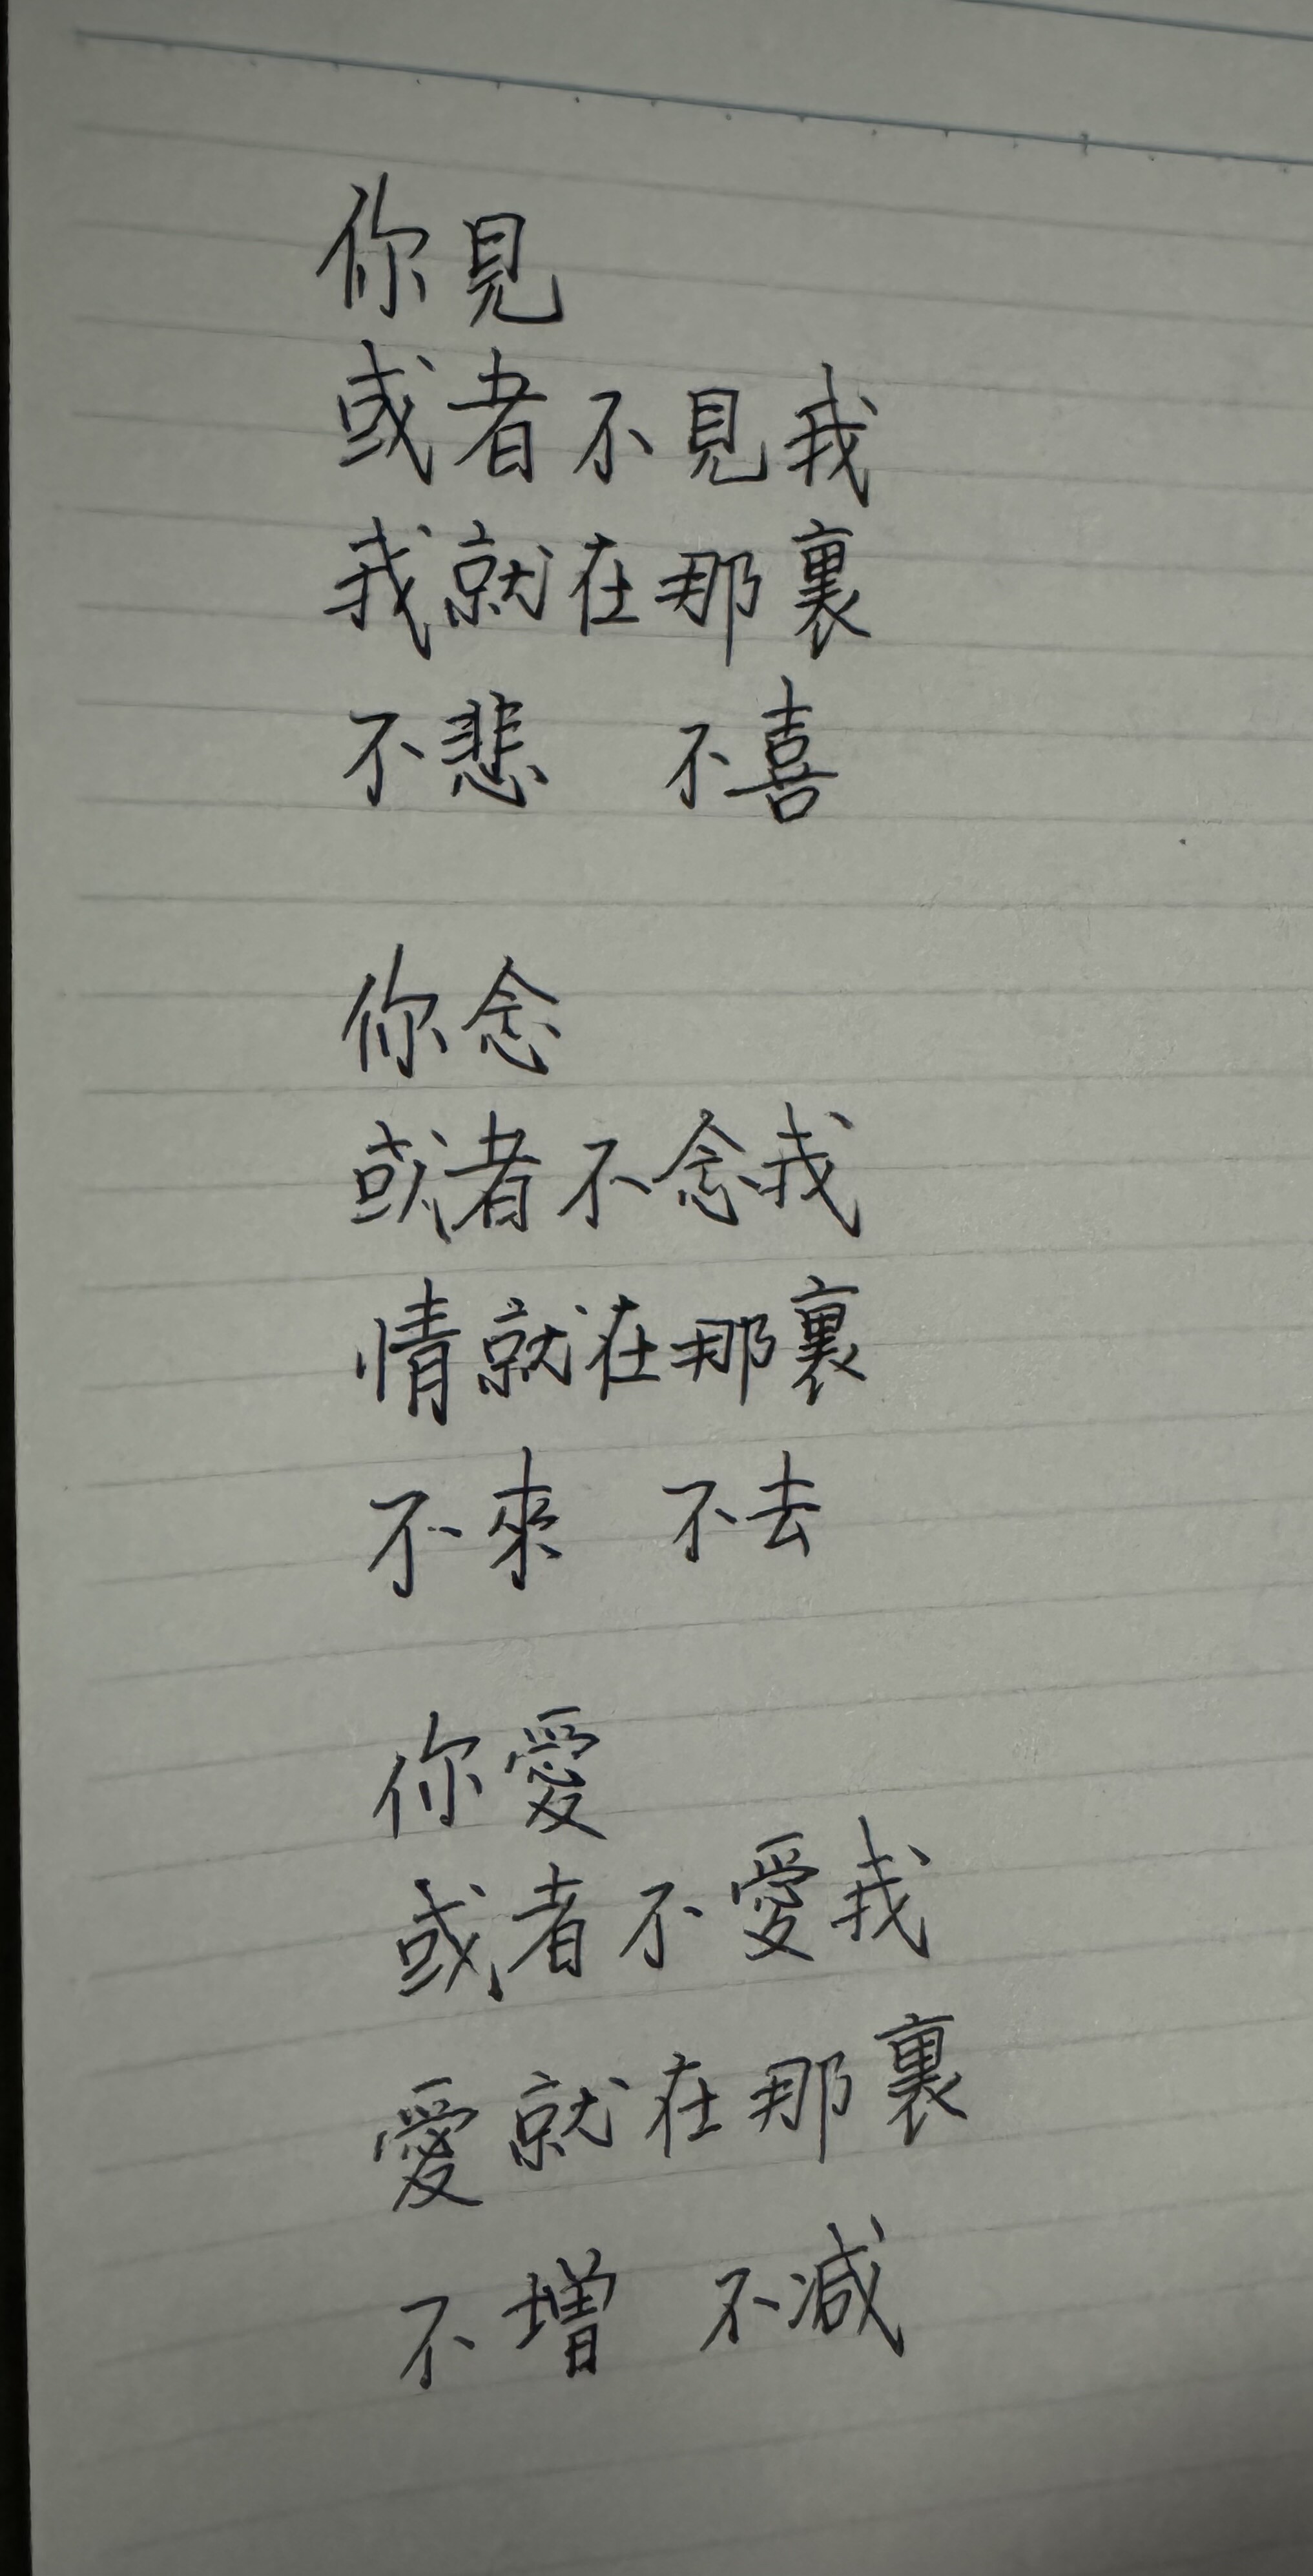 你見
或者不見我
我就在那裏
不悲 不喜
你念
或者不念我
情就在那裏
不來 不去
你愛
或者不愛我
愛就在那裏
不增 不減